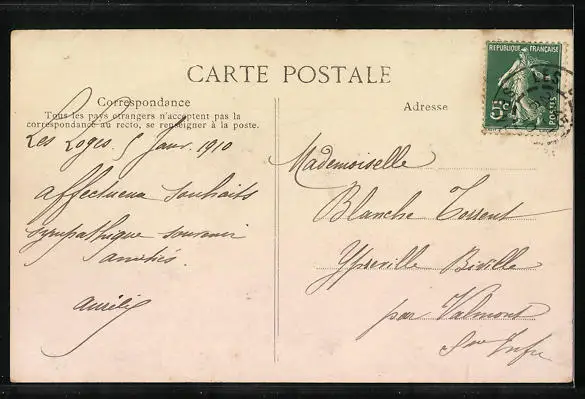 CARTE POSTALE
Correspondance
Tous les pays étrangers n'acceptent pas la
correspondance au recto, se renseigner à la poste.
Les Loges. 5 Janv. 1910
affectueux souhaits
sympathique souvenir
amitiés.
Adresse
REPUBLIQUE FRANÇAISE
5c
POSTES
Mademoiselle
Blanche Torrent
Ypreville Biville
par Valmont
Sne Infre